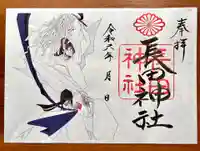 奉拝
長田神社
神社
令和六年 月 日